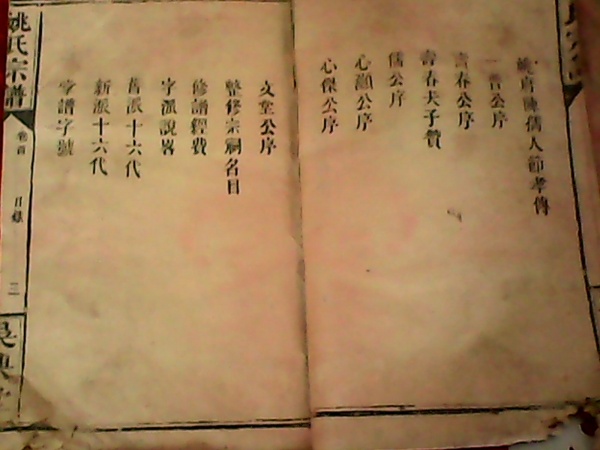 姚唐陳儒人節孝傳
一普公序
言春公序
言春夫子贊
儒公序
心灝公序
心傑公序
文堂公序
整修宗祠名目
修譜經費
字派說畧
舊派十六代
新派十六代
字譜字號
姚氏宗譜
卷首
目錄
三